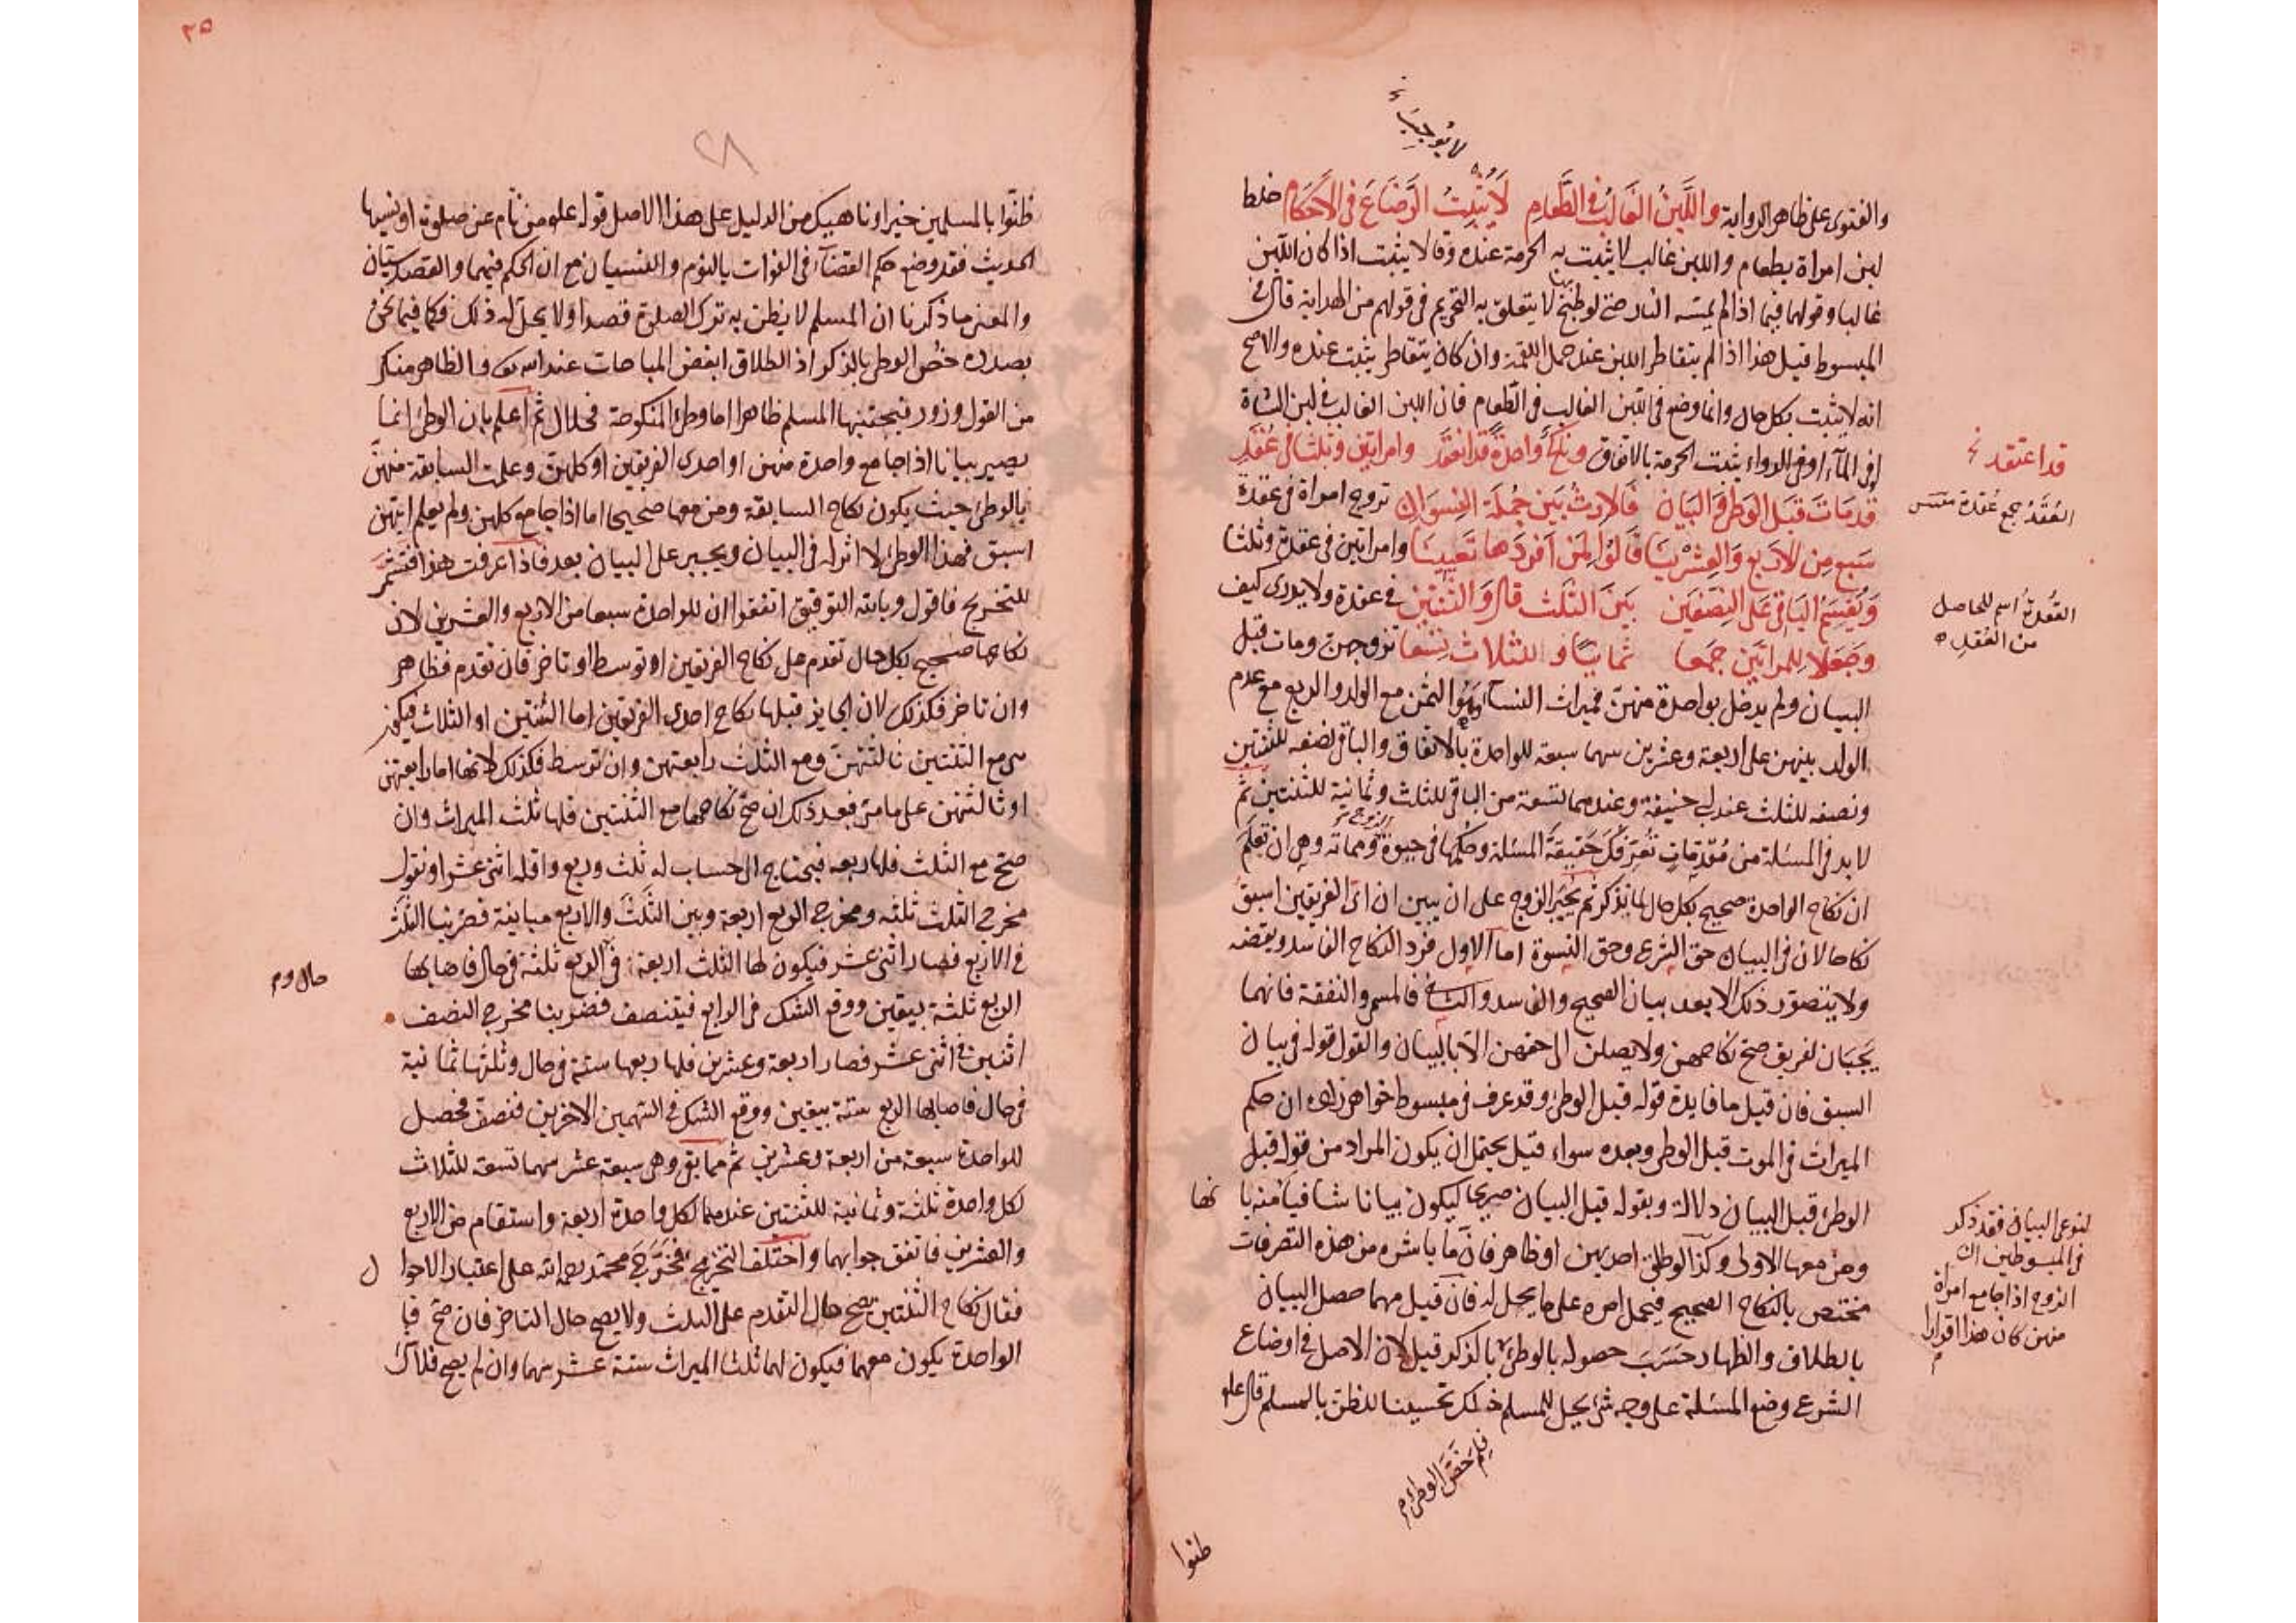 لا يوجب
والفتوى على ظاهر الرواية واللبن الغالب في الطعام لا يثبت الرضاع في الاحكام خلط
لبن امراة بطعام واللبن غالب لا يثبت به الحرمة عنده وقالا يثبت اذا كان اللبن
غالبا وقولهما فيما اذا لم يمسه النار حتى لو طبخ بها لا يتعلق به التحريم في قولهم من الهداية قال في
المبسوط قيل هذا اذا لم يتقاطر اللبن عند حمل اللقمة وان كان يتقاطر يثبت عنده والاصح
انه لا يثبت بكل حال وانما وضع في اللبن الغالب في الطعام فان اللبن الغالب في لبن الشاة
او في الماء او في الدواء يثبت الحرمة بالاتفاق ونكح واحدة قد انفقد وامراتين وثلثا في عقد
قد مات قبل الوطئ والبيان فالارث بين جملة النسوان تزوج امراة في عقدة
سبع من الاربع والعشرينا قالوا لمن افردها تعيينا وامراتين في عقدة وثلثا
ويقسم الباقي على النصفين بين الثلث قال والثنتين في عقدة ولا يدرى كيف
وجعلا للمراتين جمعا ثمانيا وللثلاث تسعا تزوجهن ومات قبل
البيان ولم يدخل بواحدة منهن فميراث النساء وهو الثمن مع الولد والربع مع عدم
الولد بينهن على اربعة وعشرين سهما سبعة للواحدة بالاتفاق والباقي نصفه للثنتين
ونصفه للثلث عند ابي حنيفة وعندهما تسعة من الباقي للثلاث وثمانية للثنتين ثم
لا بد في المسئلة من مقدمات تعرفك حقيقة المسئلة وحكمها في حيوة الزوج ومماته وهي ان تعلم
ان نكاح الواحدة صحيح بكل حال لما يذكر ثم يجبر الزوج على ان يبين ان اي الفريقين اسبق
نكاحا لان في البيان حق الشرع وحق النسوة اما الاول فرد النكاح الفاسد ونقضه
ولا يتصور ذلك الا بعد بيان الصحيح والفاسد والثاني فالمسمى والنفقة فانهما
يجبان لفريق صح نكاحهن ولا يصلن الى حقهن الا بالبيان والقول قوله في بيان
السبق فان قيل ما فايدة قوله قبل الوطئ وقد عرف في مبسوط خواهر زاده ان حكم
الميراث في الموت قبل الوطئ وبعده سواء قيل يحتمل ان يكون المراد من قوله قبل
الوطئ قبل البيان دلالة وبقوله قبل البيان صريحا ليكون بيانا شافيا منه بانها
ومن معها الاولى وكذا لو طلق احديهن او ظاهر فان ما باشره من هذه التصرفات
مختص بالنكاح الصحيح فيحمل امره على ما يحل له فان قيل مهما حصل البيان
بالطلاق والظهار حسب حصوله بالوطئ بالذكر قيل لان الاصل في اوضاع
الشرع وضع المسئلة على وجه شئ يحل للمسلم ذلك تحسينا للظن بالمسلم قال علم
فلم خص الوطئ م
ظنوا
قد اعتقد
العقد جمع عقدة
العقدة اسم للحاصل
من العقد
لنوعي البيان فقد ذكر
في المبسوطين ان
الزوج اذا جامع امراة
منهن كان هذا اقرارا
٣٥
٢٨
ظنوا بالمسلمين خيرا وناهيك من الدليل على هذا الاصل قوله علم من نام عن صلوة او نسيها
الحديث فقد وضع حكم القضاء في الفوات بالنوم والنسيان مع ان الحكم فيهما والقصد سيان
والمعنى ما ذكرنا ان المسلم لا يظن به ترك الصلوة قصدا ولا يحل له ذلك فكما فيما نحن
بصدده خص الوطئ بالذكر اذ الطلاق ابغض المباحات عند الله تع والظاهر منكر
من القول وزور فيجتنبها المسلم ظاهرا اما وطئ المنكوحة فحلال ثم اعلم بان الوطئ انما
يصير بيانا اذا جامع واحدة منهن او احدى الفريقين او كلهن وعلمت السابقة منهن
بالوطئ حيث يكون نكاح السابقة ومن معها صحيحا اما اذا جامع كلهن ولم يعلم ايتهن
اسبق فهذا الوطئ لا اثر له في البيان ويجبر على البيان بعد فاذا عرفت هذا فتشمر
للتخريج فاقول وبالله التوفيق اتفقوا ان للواحدة سبعا من الاربع والعشرين لان
نكاحها صحيح بكل حال تقدم على نكاح الفريقين او توسط او تاخر فان تقدم فظاهر
وان تاخر فكذلك لان الجايز قبلها نكاح احدى الفريقين اما الثنتين او الثلاث فيكون
هي مع الثنتين ثالثتهن ومع الثلث رابعتهن وان توسط فكذلك لانها اما رابعتهن
او ثالثتهن على ما مر فبعد ذلك ان صح نكاحها مع الثنتين فلها ثلث الميراث وان
صح مع الثلث فلها ربعه فيحتاج الى حساب له ثلث وربع واقله اثنى عشر او نقول
مخرج الثلث ثلثة ومخرج الربع اربعة وبين الثلث والاربع مباينة فضربنا الثلث
في الاربع فصار اثنى عشر فيكون لها الثلث اربعة في حال وم في الربع ثلثة في حال فاصابها
الربع ثلثة بيقين ووقع الشك في الرابع فيتنصف فضربنا مخرج النصف
اثنين في اثنى عشر فصار اربعة وعشرين فلها ربعها ستة في حال وثلثها ثمانية
في حال فاصابها الربع ستة بيقين ووقع الشك في السهمين الاخرين فتنصف فحصل
للواحدة سبعة من اربعة وعشرين ثم ما بقي وهي سبعة عشر سهما تسعة للثلاث
لكل واحدة ثلثة وثمانية للثنتين عندهما لكل واحدة اربعة واستقام من الاربع
والعشرين فاتفق جوابهما واختلف التخريج فخرج محمد رحمه الله على اعتبار الاحوال
فقال نكاح الثنتين يصح حال التقدم على الثلث ولا يصح حال التاخر فان صح فبا
الواحدة يكون معهما فيكون لهما ثلثا الميراث ستة عشر سهما وان لم يصح فلا